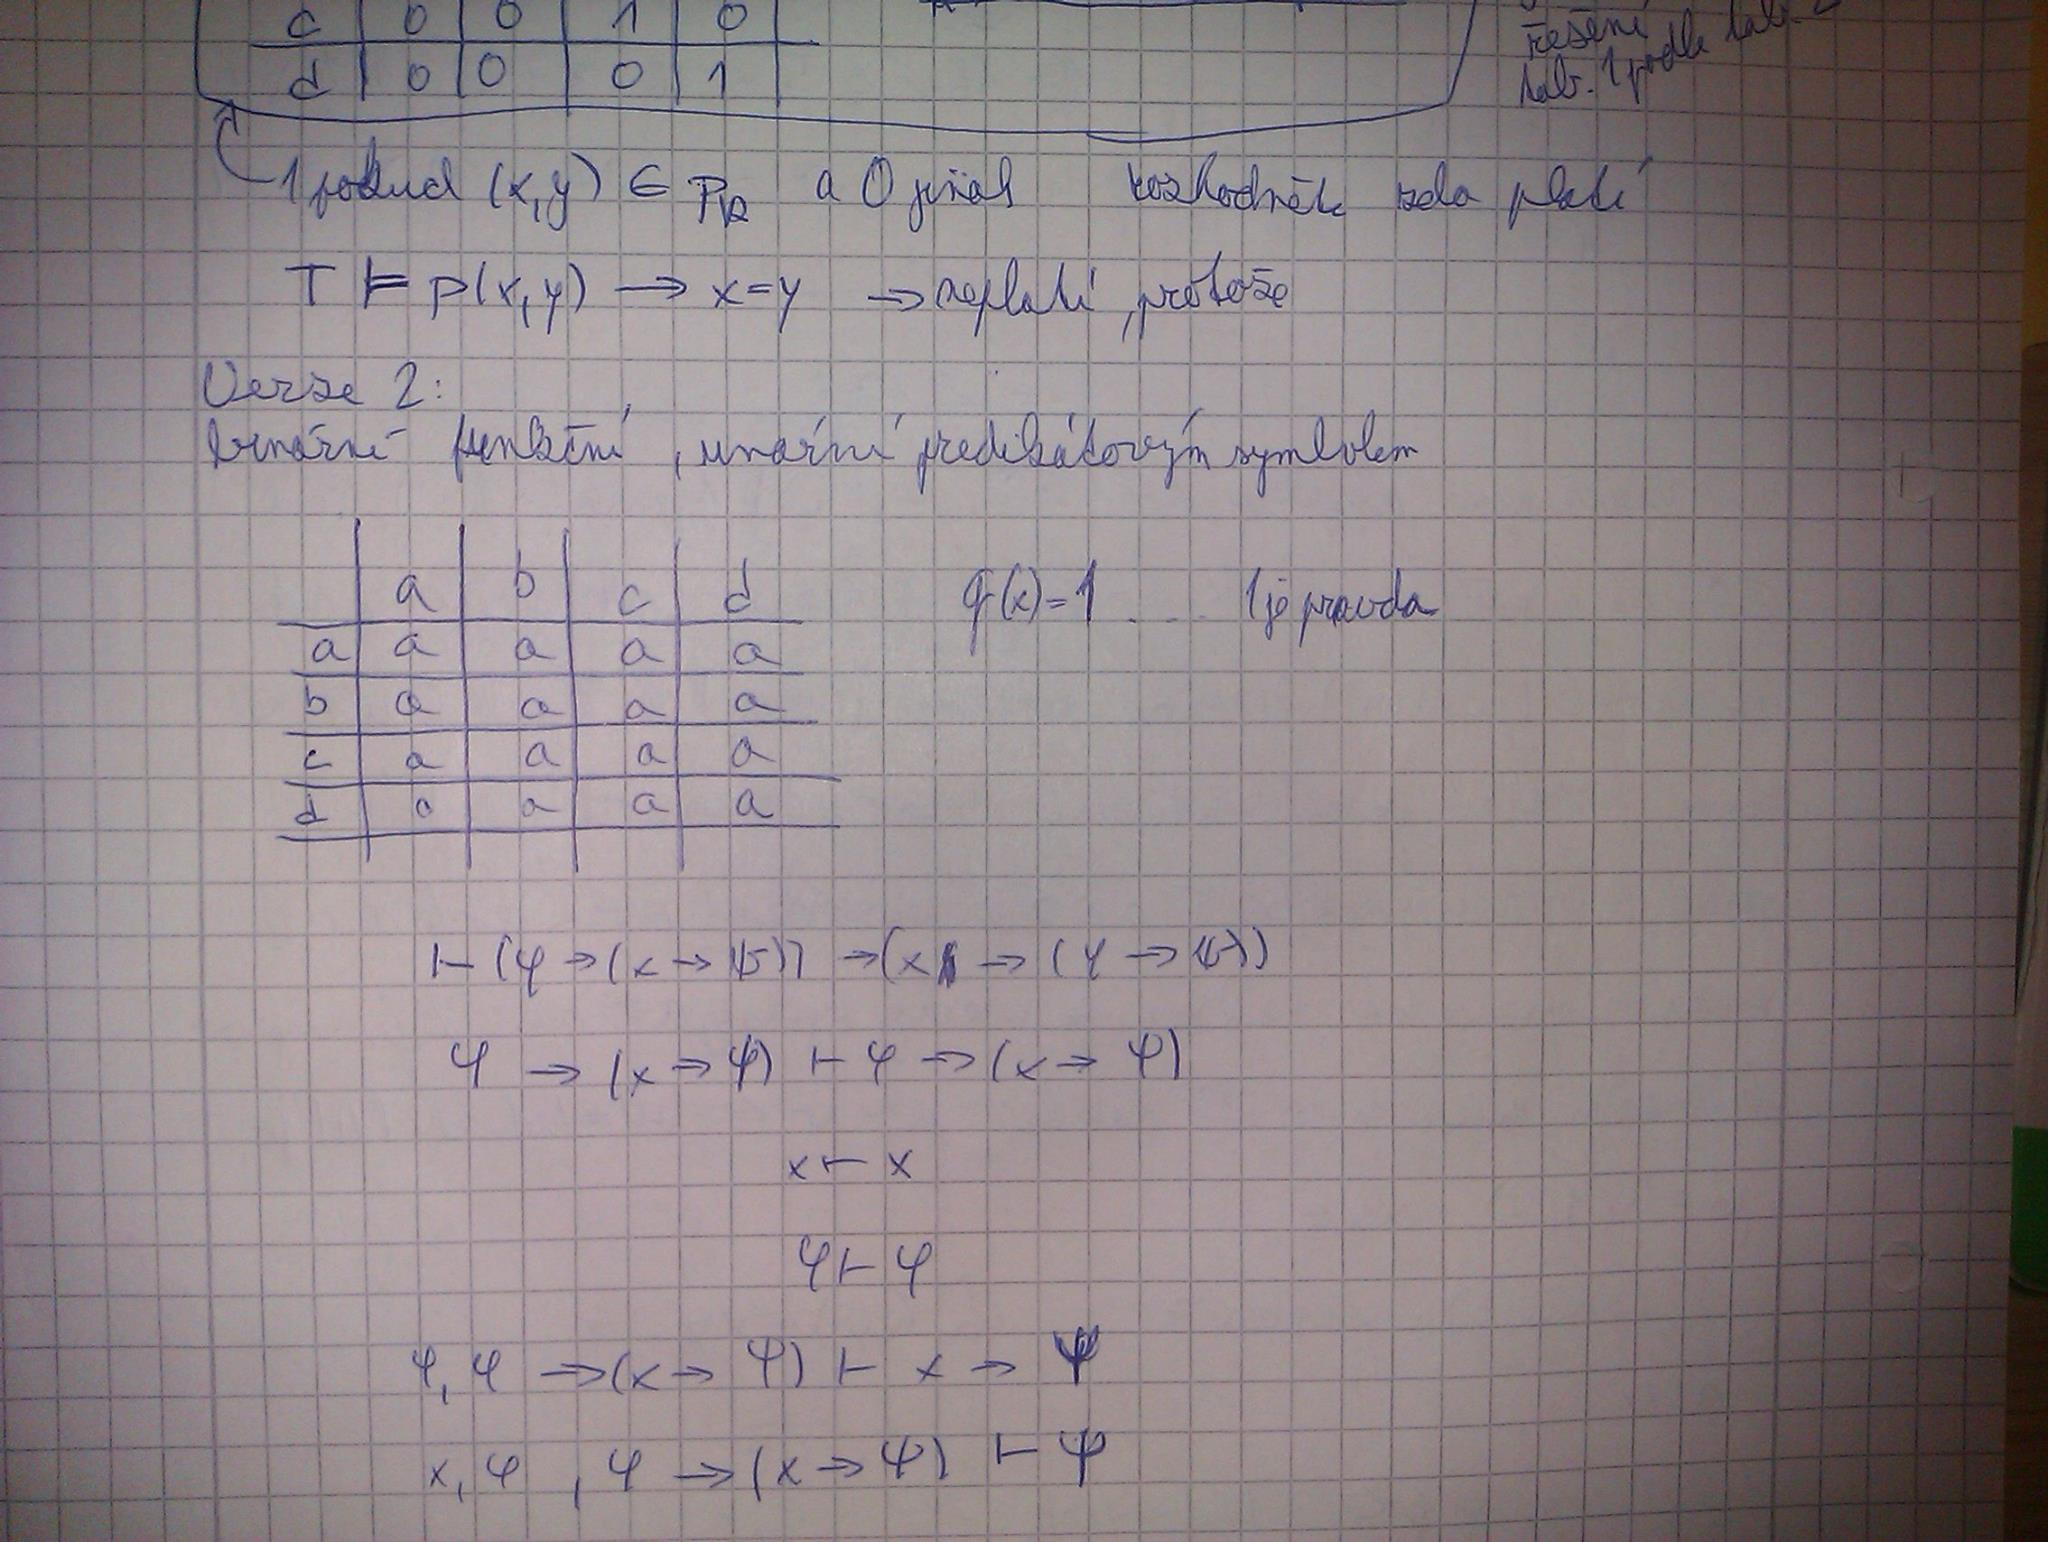 c 0 0 1 0
d 0 0 0 1
řešení
tab. 1 podle tab. 2
1 pokud (x,y) ∈ P_R a 0 jinak rozhodněte zda platí
T ⊨ p(x,y) → x=y → neplatí, protože
Verze 2:
binární funkční, unární predikátovým symbolem
a b c d
a a a a a
b a a a a
c a a a a
d a a a a
q(x)=1 .... 1 je pravda
⊢ (φ → (χ → ψ)) → (χ → (φ → ψ))
φ → (χ → ψ) ⊢ φ → (χ → ψ)
χ ⊢ χ
φ ⊢ φ
φ, φ → (χ → ψ) ⊢ χ → ψ
χ, φ, φ → (χ → ψ) ⊢ ψ